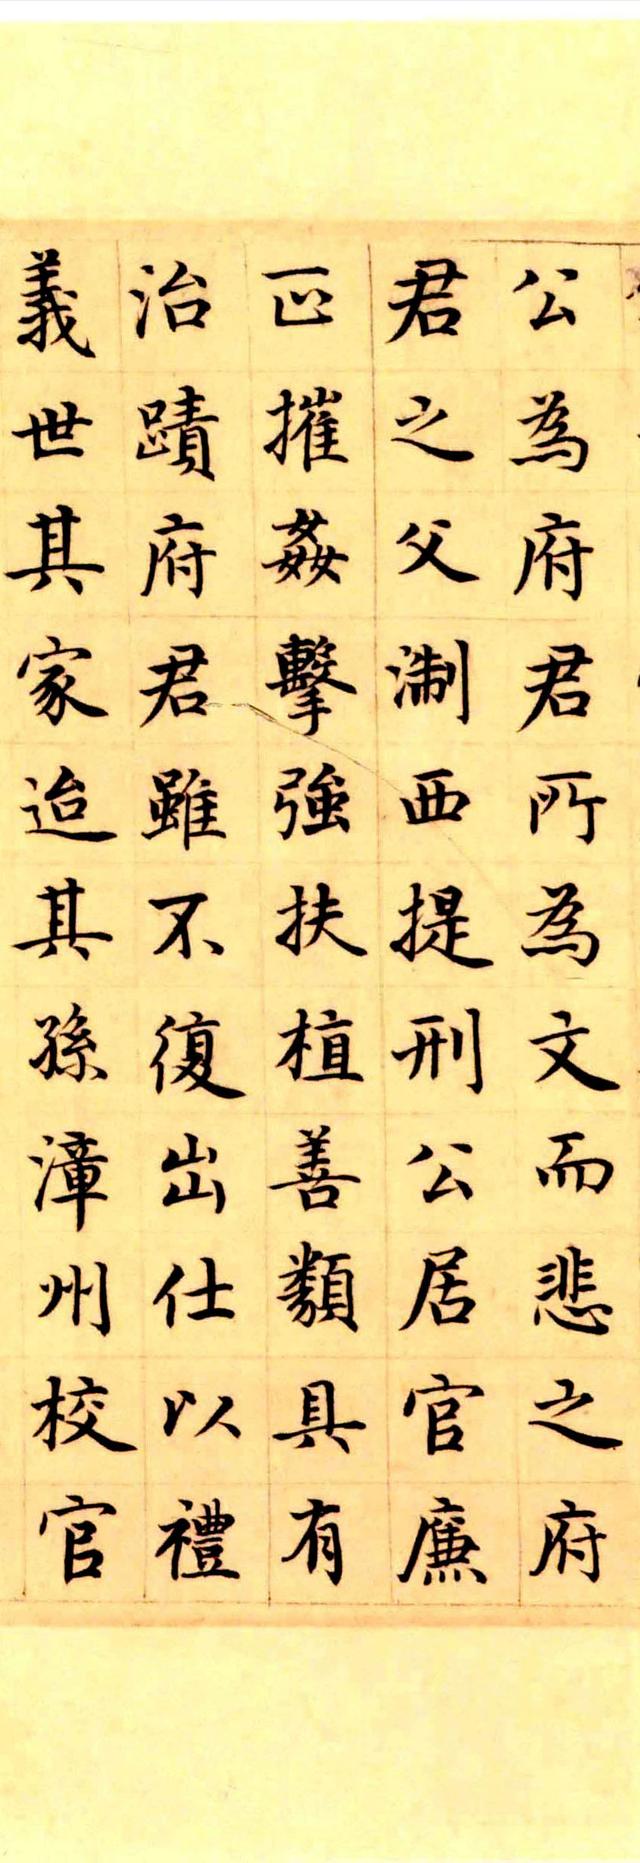 公為府君所為文而悲之府
君之父淛西提刑公居官廉
正摧姦擊強扶植善類具有
治蹟府君雖不復出仕以禮
義世其家迨其孫漳州校官